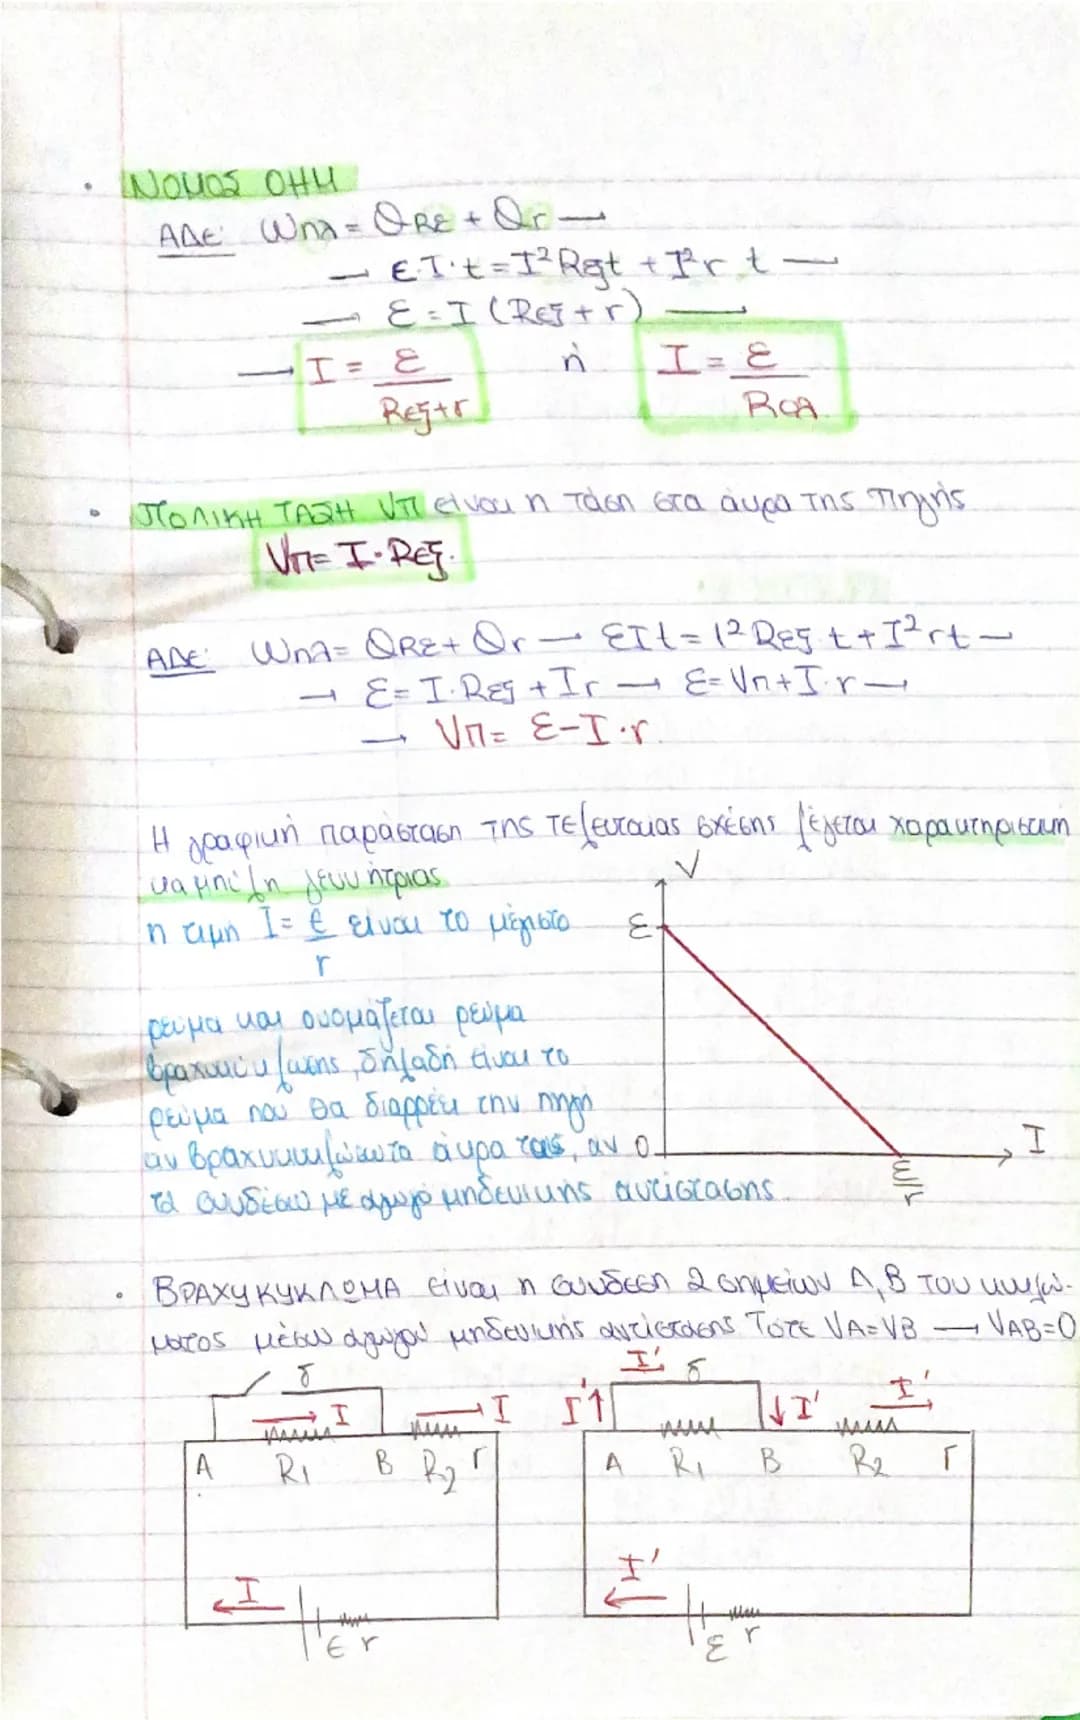 • ΝΟΜΟΣ ΟΗΜ
ΑΔΕ: Wπλ = QRE + Qr →
→ ε·I·t = I² Rεξ t + I² r t →
→ ε = I (Rεξ + r) →
→ I = ε / Rεξ+r ή I = ε / Rολ.
• ΠΟΛΙΚΗ ΤΑΣΗ Vπ είναι η τάση στα άκρα της πηγής
Vπ = I·Rεξ.
ΑΔΕ: Wπλ = QRE + Qr → εIt = I² Rεξ t + I² r t →
→ ε = I·Rεξ + Ir → ε = Vπ + I·r →
→ Vπ = ε - I·r.
Η γραφική παράσταση της τελευταίας σχέσης λέγεται χαρακτηριστική
καμπύλη γεννήτριας
η τιμή I = ε / r είναι το μέγιστο
ρεύμα και ονομάζεται ρεύμα
βραχυκύκλωσης, δηλαδή είναι το
ρεύμα που θα διαρρέει την πηγή
αν βραχυκυκλώσω τα άκρα της, αν
τα συνδέσω με αγωγό μηδενικής αντίστασης.
V
ε
0
I
ε / r
• ΒΡΑΧΥΚΥΚΛΩΜΑ είναι η σύνδεση 2 σημείων Α, Β του κυκλώ-
ματος μέσω αγωγού μηδενικής αντίστασης Τότε VA=VB → VAB=0
δ I' δ
I I I' I' I'
A R1 B R2 Γ A R1 B R2 Γ
I I'
ε r ε r